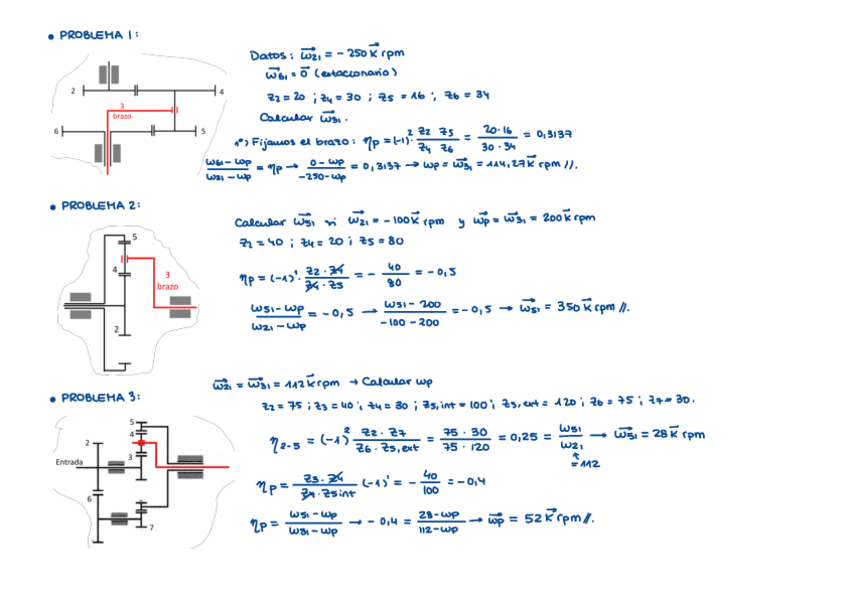 • PROBLEMA 1:
Datos: ω⃗21 = - 250 k⃗ rpm
ω⃗61 = 0⃗ (estacionario)
z2 = 20 ; z4 = 30 ; z5 = 16 ; z6 = 34
Calcular ω⃗31.
1º) Fijamos el brazo: ηp = (-1)² · (z2 z5)/(z4 z6) = (20·16)/(30·34) = 0,3137
(ω61 - ωp)/(ω21 - ωp) = ηp → (0 - ωp)/(-250 - ωp) = 0,3137 → ωp = ω⃗31 = 114,27 k⃗ rpm //.
2
4
3
brazo
6
5
• PROBLEMA 2:
Calcular ω⃗51 si ω⃗21 = - 100 k⃗ rpm y ω⃗p = ω⃗31 = 200 k⃗ rpm
z2 = 40 ; z4 = 20 ; z5 = 80
ηp = (-1)¹ · (z2 · z4)/(z4 · z5) = - 40/80 = - 0,5
(ω51 - ωp)/(ω21 - ωp) = - 0,5 → (ω51 - 200)/(-100 - 200) = - 0,5 → ω⃗51 = 350 k⃗ rpm //.
5
4
3
brazo
2
• PROBLEMA 3:
ω⃗21 = ω⃗31 = 112 k⃗ rpm → Calcular ωp
z2 = 75 ; z3 = 40 ; z4 = 80 ; z5,int = 100 ; z5,ext = 120 ; z6 = 75 ; z7 = 30.
η2-5 = (-1)² (z2 · z7)/(z6 · z5,ext) = (75 · 30)/(75 · 120) = 0,25 = ω51/ω21 → ω⃗51 = 28 k⃗ rpm
↑
= 112
ηp = (z3 · z4)/(z4 · z5int) (-1)¹ = - 40/100 = - 0,4
ηp = (ω51 - ωp)/(ω31 - ωp) → - 0,4 = (28 - ωp)/(112 - ωp) → ω⃗p = 52 k⃗ rpm //.
5
4
2
3
Entrada
6
7